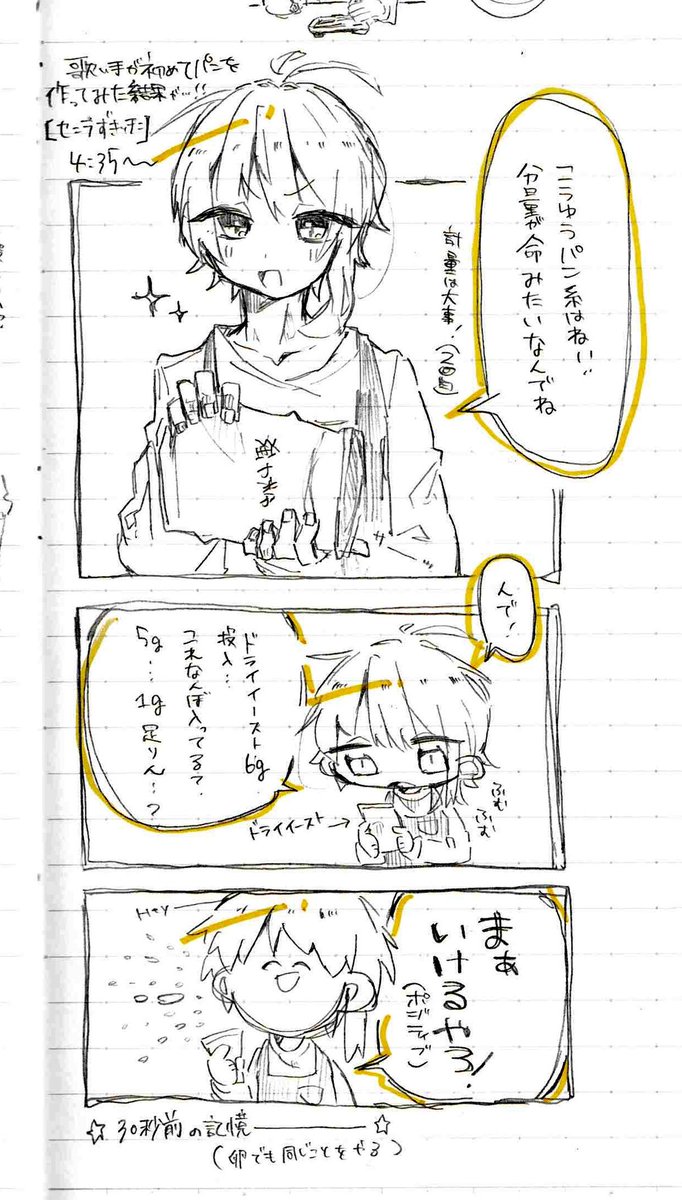 歌い手が初めてパンを
作ってみた結果が…!!
[セニラずきっチン]
4:35〜
「こうゆうパン系はねい"
分量が命みたいなんでね
計量は大事!(2回目)
んで!
ドライイースト6g
投入…
これなんぼ入ってるて?
5g… 1g足りん…?
ドライイースト→
ふむ
ふむ
Hey
まぁ
いけるやろ!
(ポジティブ)
☆30秒前の記憶――☆
(卵でも同じことをやる)